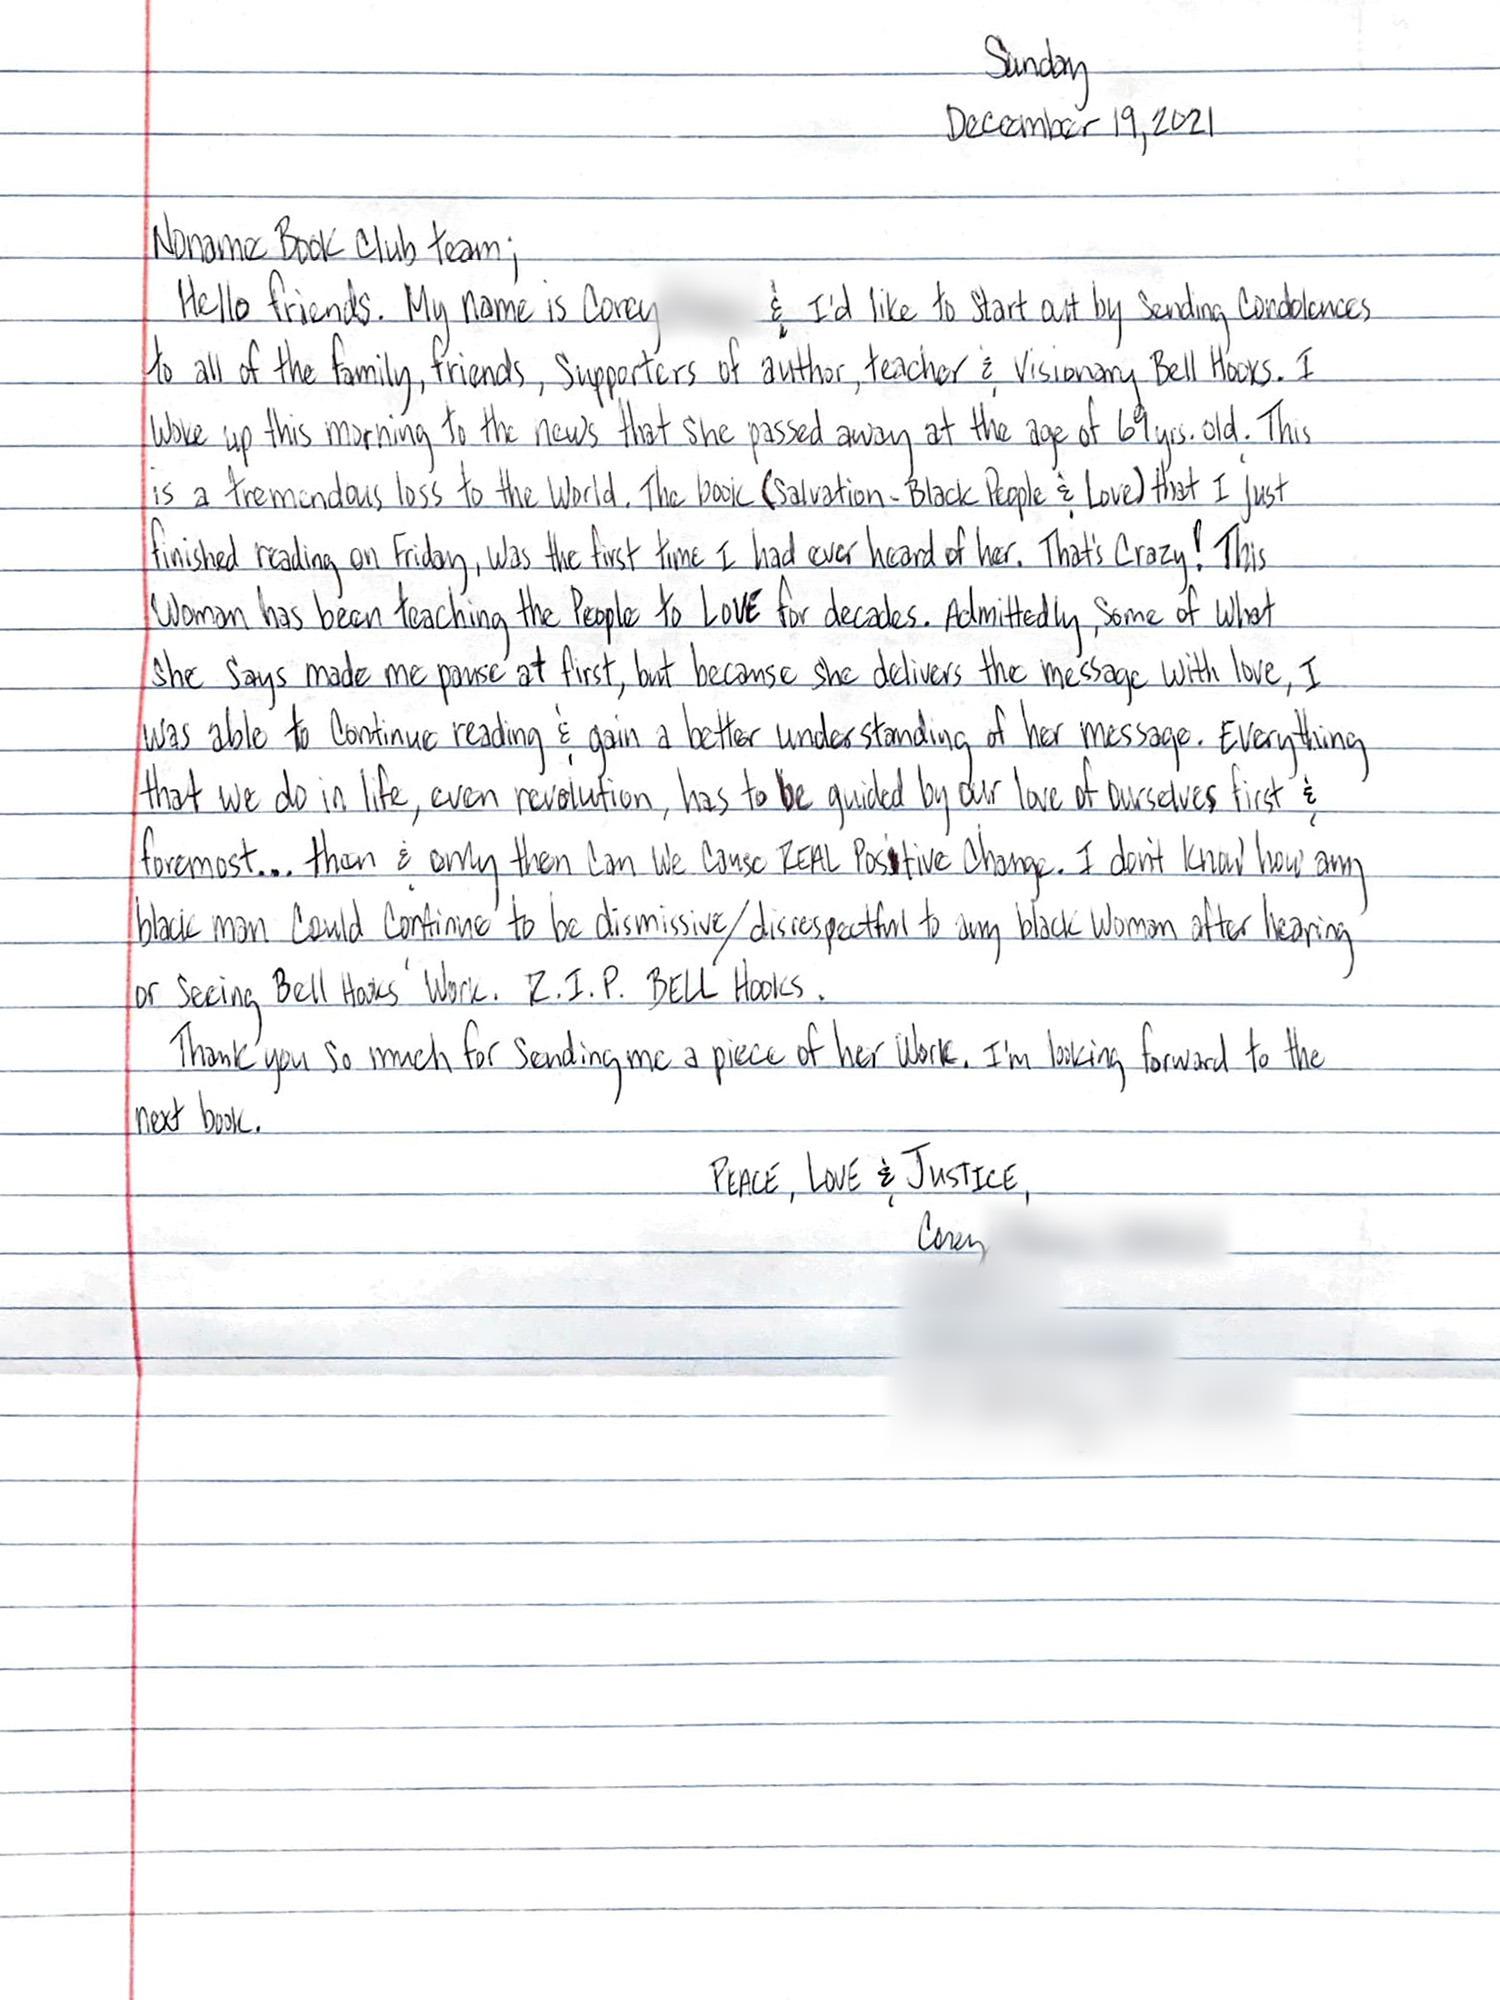 Sunday
December 19, 2021
Noname Book Club team;
Hello friends. My name is Corey & I'd like to start out by sending Condolences
to all of the family, friends, supporters of author, teacher & Visionary Bell Hooks. I
woke up this morning to the news that she passed away at the age of 69 yrs. old. This
is a tremendous loss to the World. The book (Salvation - Black People & Love) that I just
finished reading on Friday, was the first time I had ever heard of her. That's Crazy! This
Woman has been teaching the People to LOVE for decades. Admittedly, some of what
she says made me pause at first, but because she delivers the message with love, I
was able to Continue reading & gain a better understanding of her message. Everything
that we do in life, even revolution, has to be guided by our love of ourselves first &
foremost... then & only then Can We Cause REAL Positive Change. I don't know how any
black man Could Continue to be dismissive/disrespectful to any black Woman after hearing
or seeing Bell Hooks' Work. R.I.P. BELL HOOKS.
Thank you so much for sending me a piece of her work. I'm looking forward to the
next book.
PEACE, LOVE & JUSTICE,
Corey